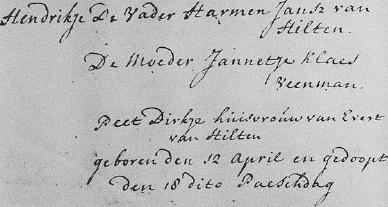 Hendrikje De Vader Harmen Jansz van
Hilten.
De Moeder Jannetje Klaes
Veenman.
Peet Dirkje huisvrouw van Evert
van Hilten
geboren den 12 April en gedoopt
den 18 dito Paeschdag